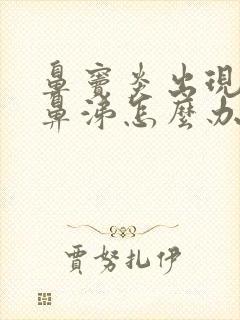 鼻竇炎出現
鼻涕怎麼办
賈努扎伊